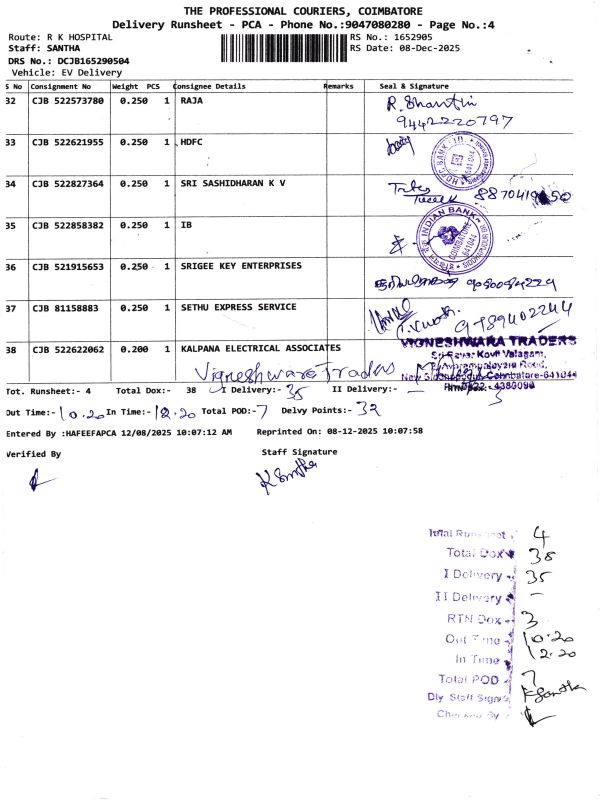 THE PROFESSIONAL COURIERS, COIMBATORE
Delivery Runsheet - PCA - Phone No.:9047080280 - Page No.:4
Route: R K HOSPITAL
RS No.: 1652905
Staff: SANTHA
RS Date: 08-Dec-2025
DRS No.: DCJB165290504
Vehicle: EV Delivery
S No Consignment No Weight PCS Consignee Details Remarks Seal & Signature
32 CJB 522573780 0.250 1 RAJA R. Shanthi
9442220797
33 CJB 522621955 0.250 1 HDFC
HDFC BANK LTD.
34 CJB 522827364 0.250 1 SRI SASHIDHARAN K V
35 CJB 522858382 0.250 1 IB
INDIAN BANK
COIMBATORE
641044
36 CJB 521915653 0.250 1 SRIGEE KEY ENTERPRISES
37 CJB 81158883 0.250 1 SETHU EXPRESS SERVICE
9789402244
38 CJB 522622062 0.200 1 KALPANA ELECTRICAL ASSOCIATES
VIGNESHWARA TRADERS
Vigneshwara Traders
Coimbatore-641044
Tot. Runsheet:- 4 Total Dox:- 38 I Delivery:- 35 II Delivery:- - 3
Out Time:- 10.20 In Time:- 12.20 Total POD:- 7 Delvy Points:- 32
Entered By :HAFEEFAPCA 12/08/2025 10:07:12 AM Reprinted On: 08-12-2025 10:07:58
Verified By Staff Signature
K Santha
Total Runsheet 4
Total Dox 38
I Delivery 35
II Delivery -
RTN Dox 3
Out Time 10.20
In Time 12.20
Total POD 7
Dly Staff Sign K Santha
Checked By